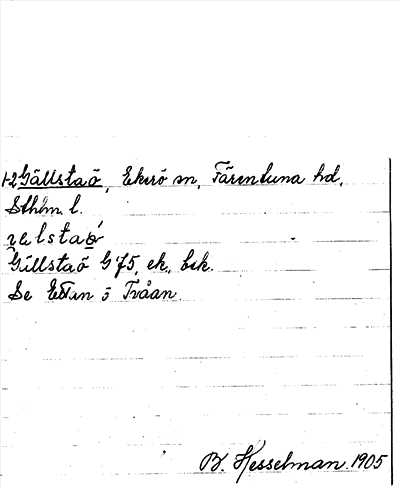 1-2 Gällstaö, Ekerö sn, Färentuna hd,
Sthlm. l.
Gällstaö G 75, ek, bik.
Se Ettan o Tvåan
B. Hesselman 1905